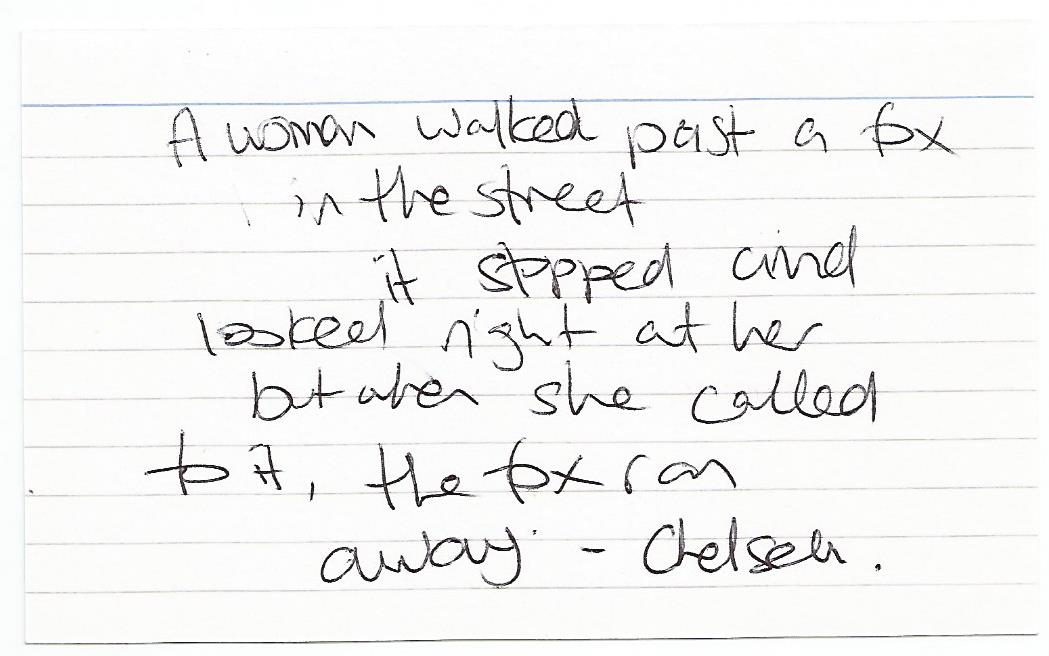 A woman walked past a fox
in the street
it stopped and
looked right at her
but when she called
to it, the fox ran
away - Chelsea.